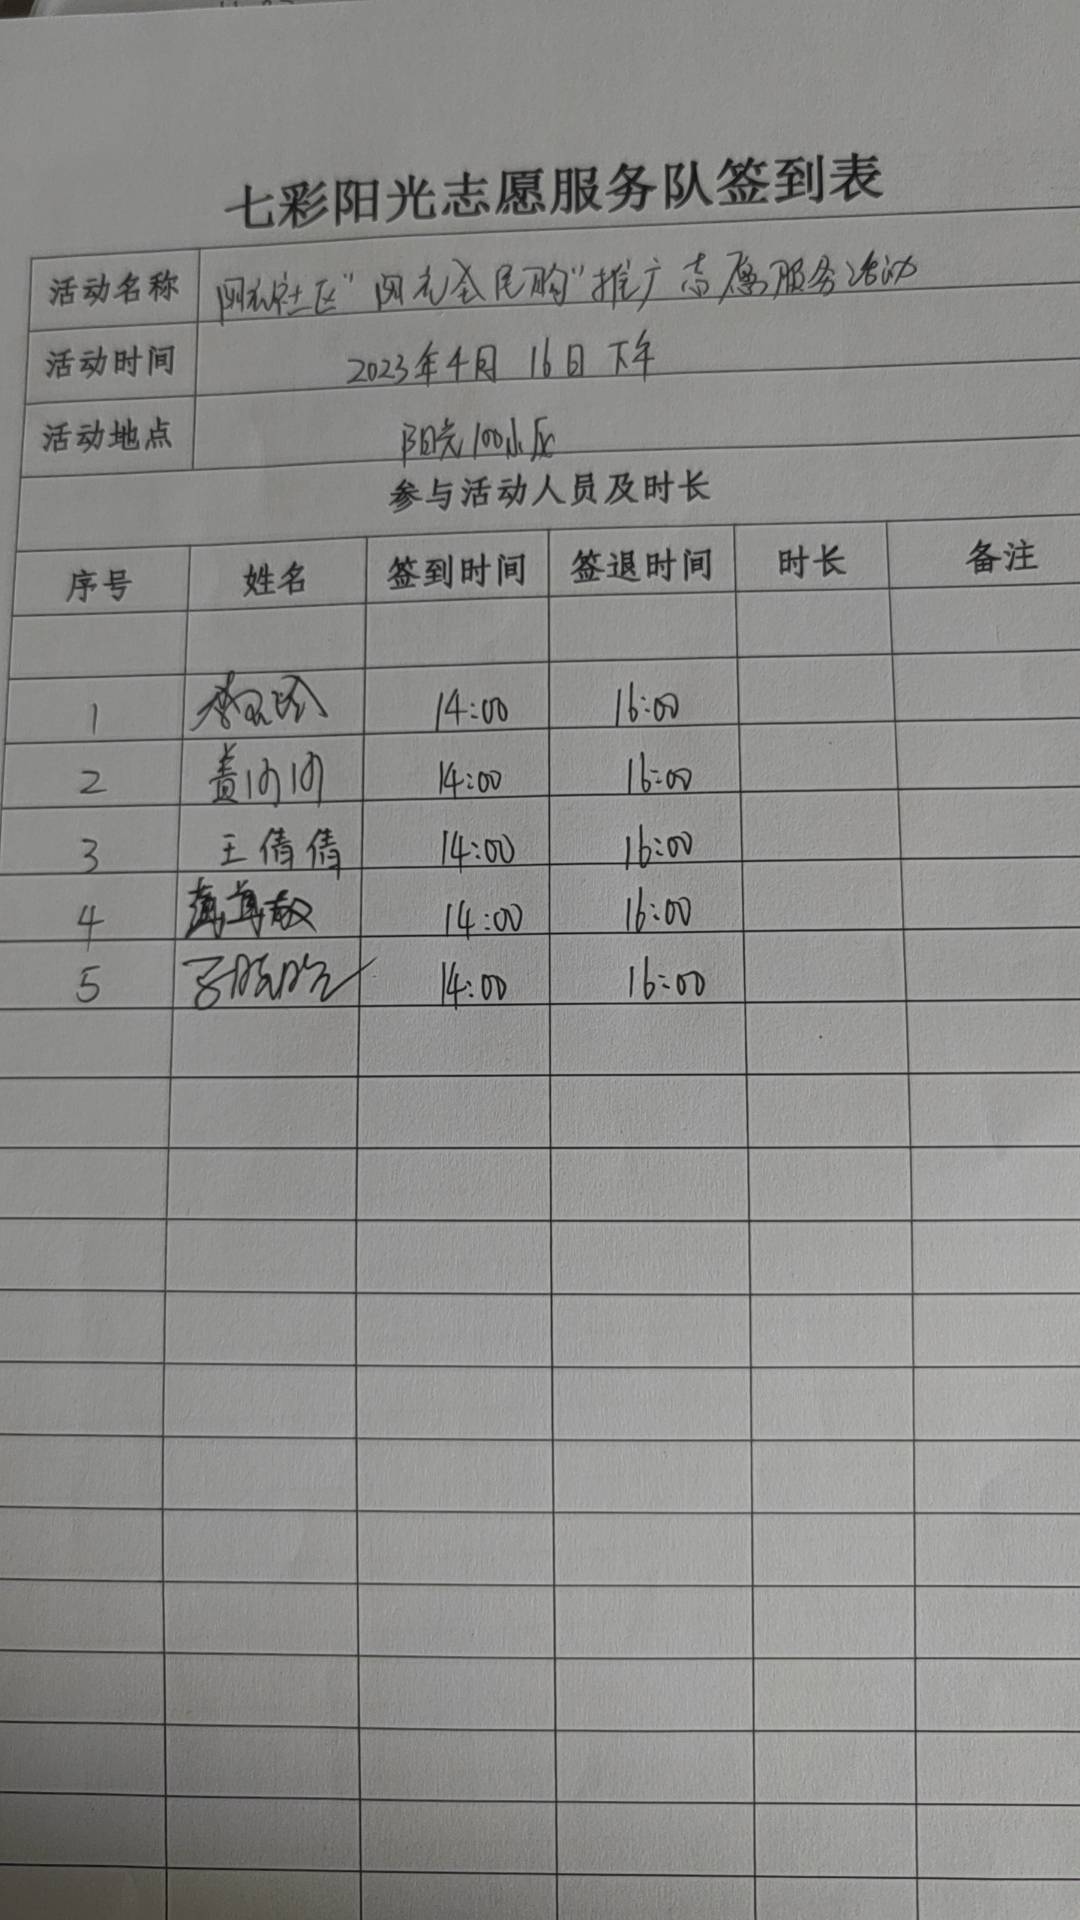 七彩阳光志愿服务队签到表
活动名称 社区“全民购”推广志愿服务活动
活动时间 2023年4月 16日 下午
活动地点 阳光100小区
参与活动人员及时长
序号 姓名 签到时间 签退时间 时长 备注
1 14:00 16:00
2 14:00 16:00
3 王倩倩 14:00 16:00
4 14:00 16:00
5 14:00 16:00